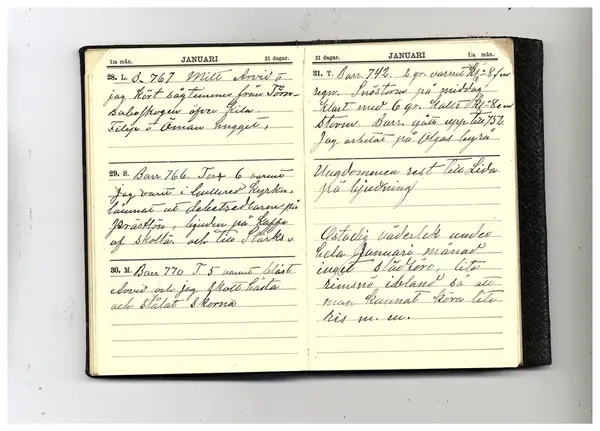 1:a mån. JANUARI 31 dagar.
28. L. B. 767 Milt Arvid o
jag kört sågtimmer från Törn-
saboskogen äfven Gila
Filip o Öman hugget,
29. S. Barr 766. Ter 6 varmt
jag varit i Kyrka
lämnat ut på
bjuden på Kaffe
af och till Starks
30. M. Barr 770 T. 5 varmt blåst
Arvid och jag skott hästa
och stålat skorna
1:a mån. JANUARI 31 dagar.
31. T. Barr. 742. 2 gr. varmt Kl = 8 fm
regn. Snöstorm på middag
klart med 6 gr. Kallt Kl = 8 em
storm. Barr. gått upp till 752
Jag arbetat på Olgas byrå
Ungdommen rest till Lida
på bjudning
Ostadig väderlek under
hela Januari månad
inget slädföre, lite
rimsno ibland så att
man kunnat köra lite
ris m. m.